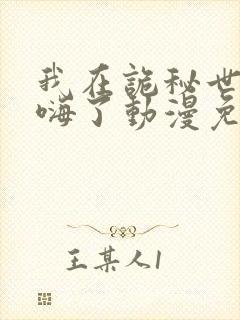 我在詭秘世
嗨了動漫免
王某人1